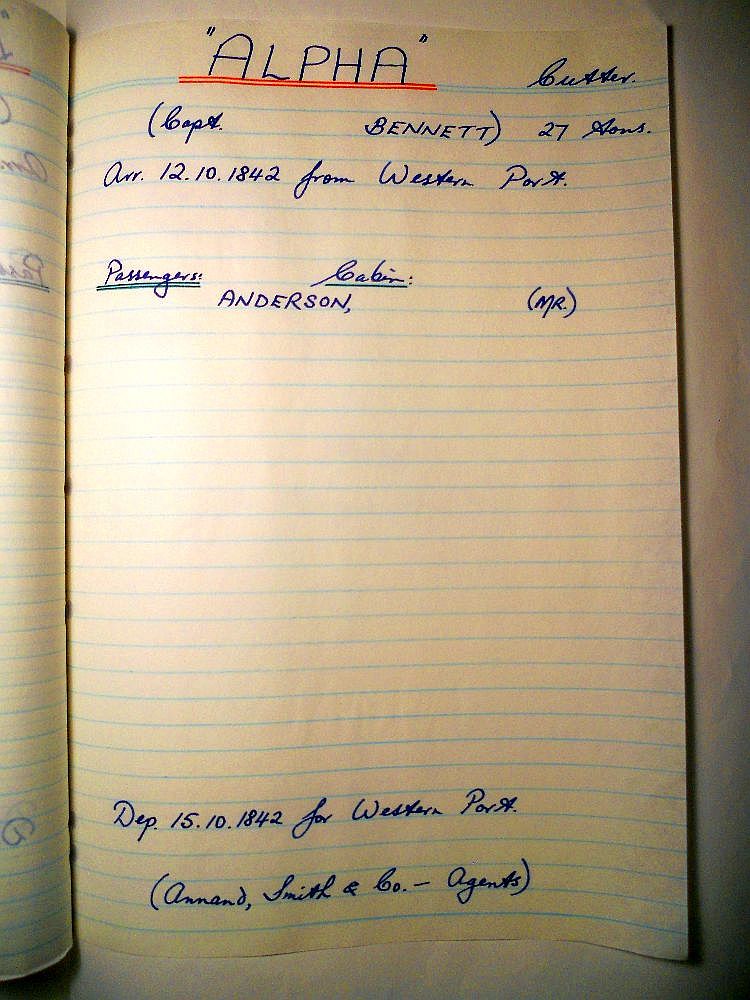 "ALPHA" Cutter.
(Capt. BENNETT) 27 tons.
Arr. 12.10.1842 from Western Port.
Passengers: Cabin:
ANDERSON, (MR.)
Dep. 15.10.1842 for Western Port.
(Annand, Smith & Co. — Agents)